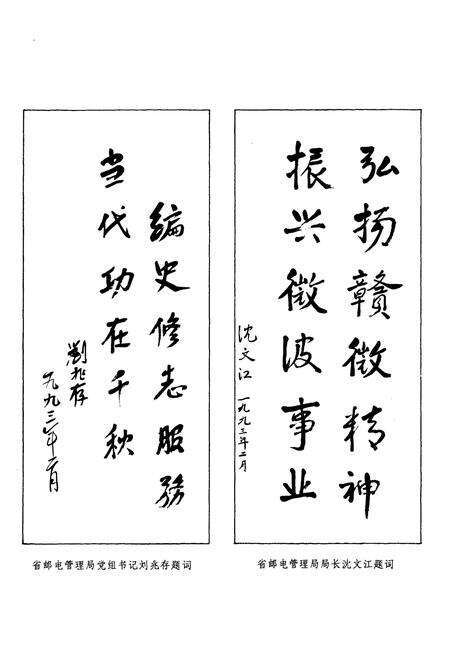 弘扬赣微精神
振兴微波事业
沈文江 一九九三年二月
省邮电管理局局长沈文江题词
编史修志服务
当代功在千秋
刘兆存
一九九三年二月
省邮电管理局党组书记刘兆存题词